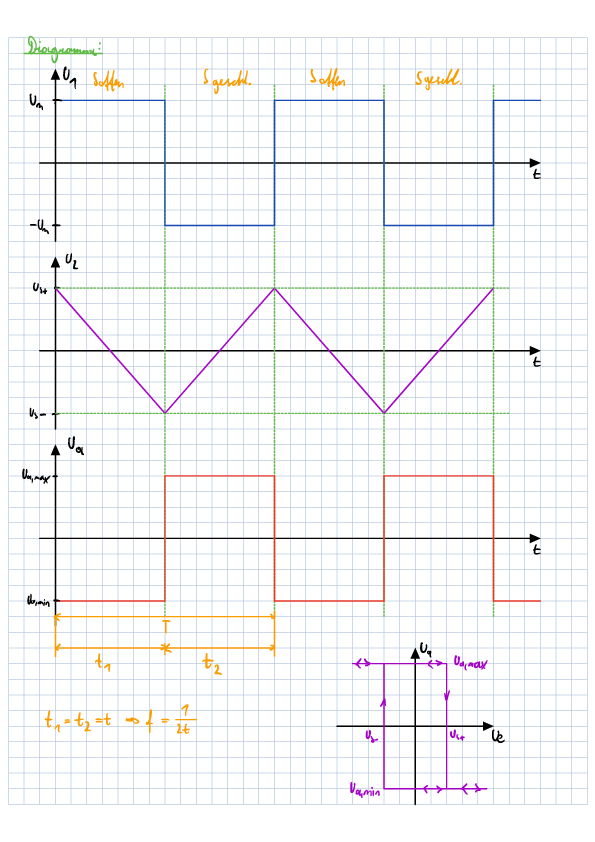 Diagramme:
U1
S offen
S geschl.
S offen
S geschl.
Um
t
-Um
U2
Us+
t
Us-
Ua
Ua,max
t
Ua,min
T
t1
t2
t1 = t2 = t ⇒ f = 1/2t
Ua
Ua,max
Us-
Us+
Ue
Ua,min